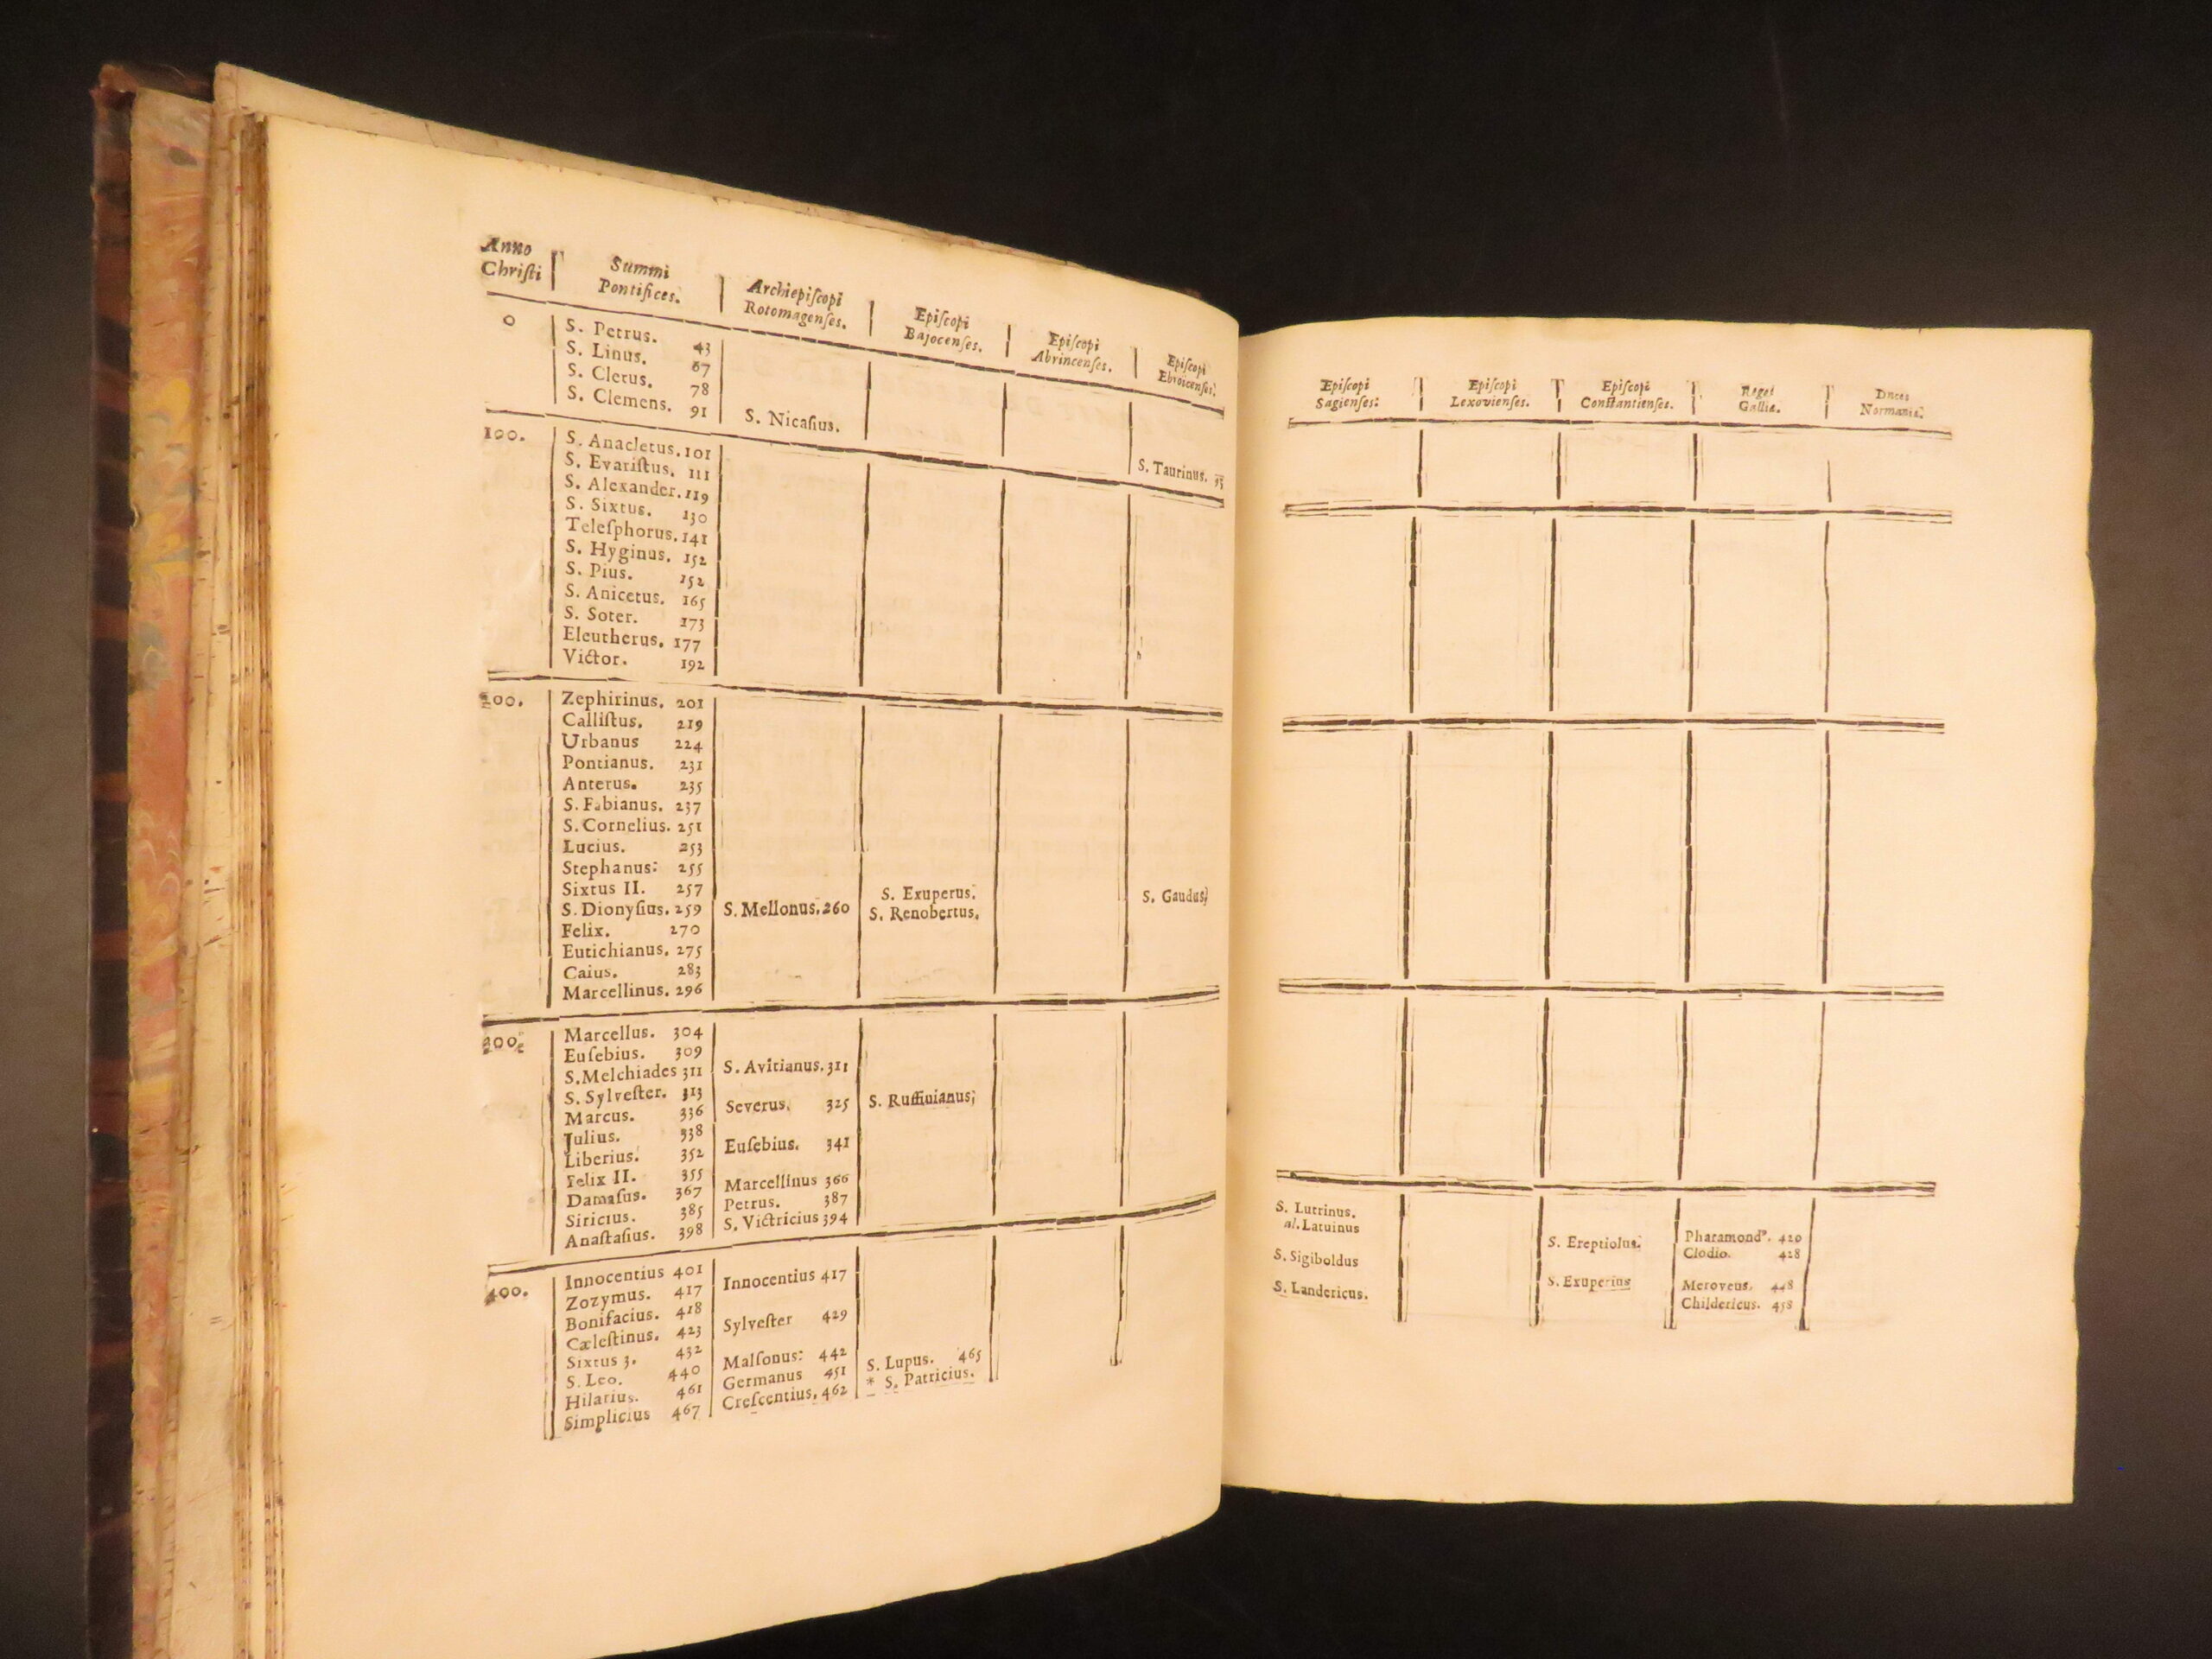 Anno
Chriſti
Summi
Pontifices.
Archiepiſcopi
Rotomagenſes.
Epiſcopi
Bajocenſes.
Epiſcopi
Abrincenſes.
Epiſcopi
Ebroicenſes.
0
S. Petrus. 43
S. Linus. 67
S. Cletus. 78
S. Clemens. 91
S. Nicaſius.
S. Taurinus.
100.
S. Anacletus. 101
S. Evariſtus. 111
S. Alexander. 119
S. Sixtus. 130
Teleſphorus. 141
S. Hyginus. 152
S. Pius. 152
S. Anicetus. 165
S. Soter. 173
Eleutherus. 177
Victor. 192
200.
Zephirinus. 201
Calliſtus. 219
Urbanus 224
Pontianus. 231
Anterus. 235
S. Fabianus. 237
S. Cornelius. 251
Lucius. 253
Stephanus: 255
Sixtus II. 257
S. Dionyſius. 259
Felix. 270
Eutichianus. 275
Caius. 283
Marcellinus. 296
S. Mellonus. 260
S. Exuperus.
S. Renobertus.
S. Gaudus;
300.
Marcellus. 304
Euſebius. 309
S. Melchiades 311
S. Sylveſter. 313
Marcus. 336
Julius. 338
Liberius. 352
Felix II. 355
Damaſus. 367
Siricius. 385
Anaſtaſius. 398
S. Avitianus. 311
Severus. 325
Euſebius. 341
Marcellinus 366
Petrus. 387
S. Victricius 394
S. Ruffinianus;
400.
Innocentius 401
Zozymus. 417
Bonifacius. 418
Cæleſtinus. 423
Sixtus 3. 432
S. Leo. 440
Hilarius. 461
Simplicius 467
Innocentius 417
Sylveſter 429
Malſonus: 442
Germanus 451
Creſcentius. 462
S. Lupus. 465
* S. Patricius.
Epiſcopi
Sagienſes:
Epiſcopi
Lexovienſes.
Epiſcopi
Conſtantienſes.
Reges
Galliæ.
Duces
Normaniæ.
S. Lutrinus.
al. Latuinus
S. Sigiboldus
S. Landericus.
S. Ereptiolus.
S. Exuperius
Pharamondꝰ. 420
Clodio. 428
Meroveus. 448
Childericus. 458